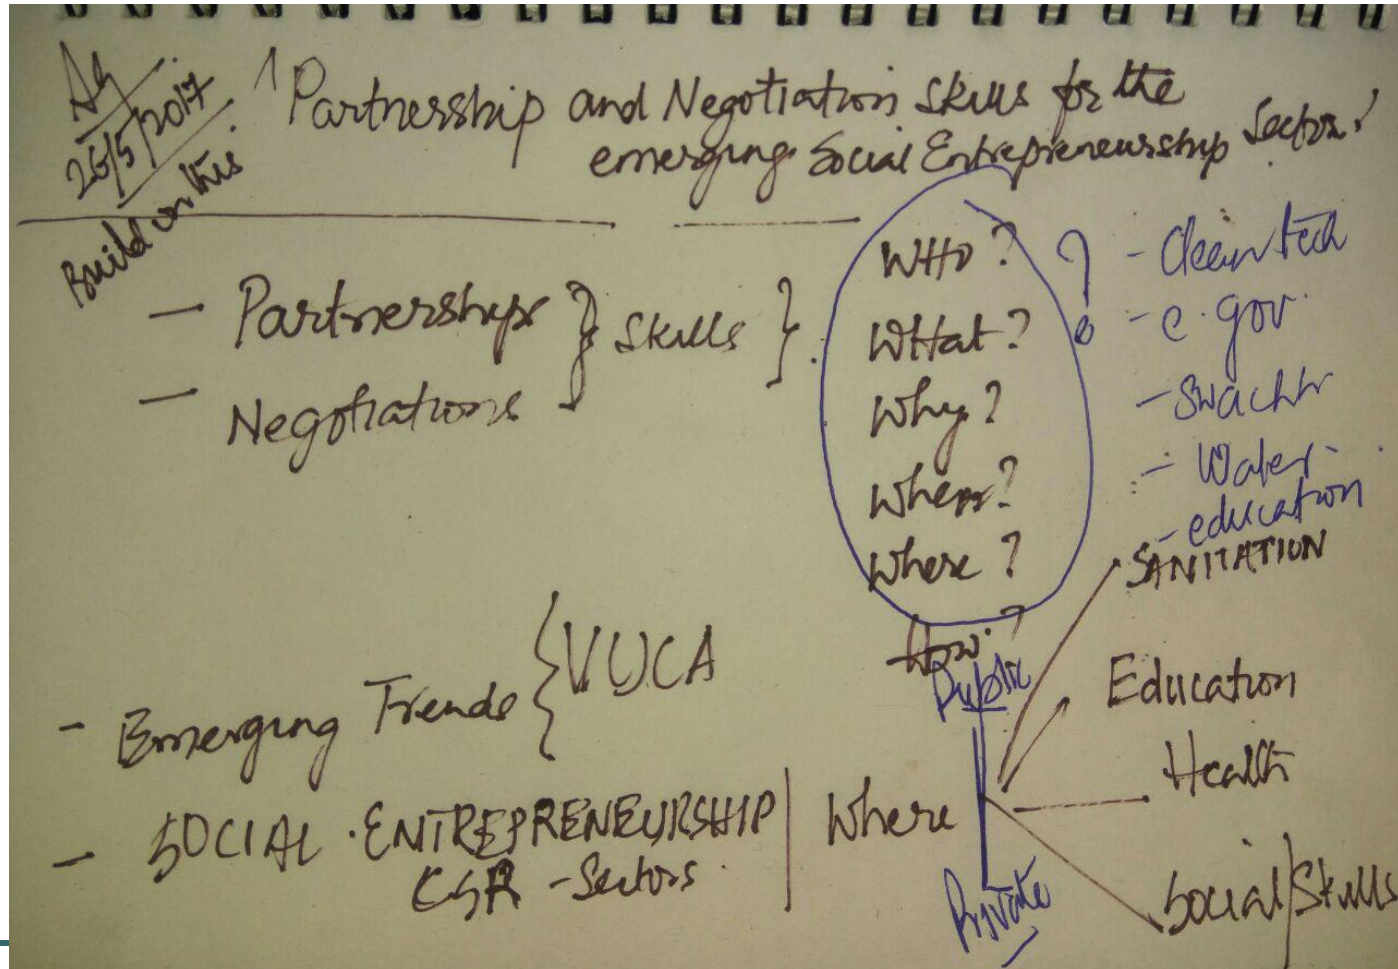 26/5/2017
Build on this
'Partnership and Negotiation Skills for the
emerging Social Entrepreneurship Sector'
- Partnerships } Skills }.
- Negotiations
WHO?
WHat?
Why?
When?
Where?
How?
?
- Cleantech
- e.gov.
- Swachh
- Water
- education
SANITATION
- Emerging Trends { VUCA
- SOCIAL ENTREPRENEURSHIP | Where
CSR - Sectors
Public
Private
Education
Health
Social/Skills